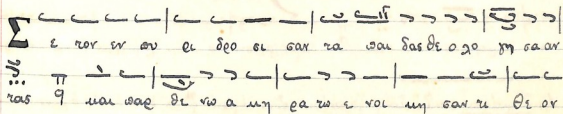 Σε τον εν πυ ρι δρο σι σαν τα παι δας θε ο λο γη σα αν
τας ϥ και παρ θε νω α κη ρα τω ε νοι κη σαν τι θε ον